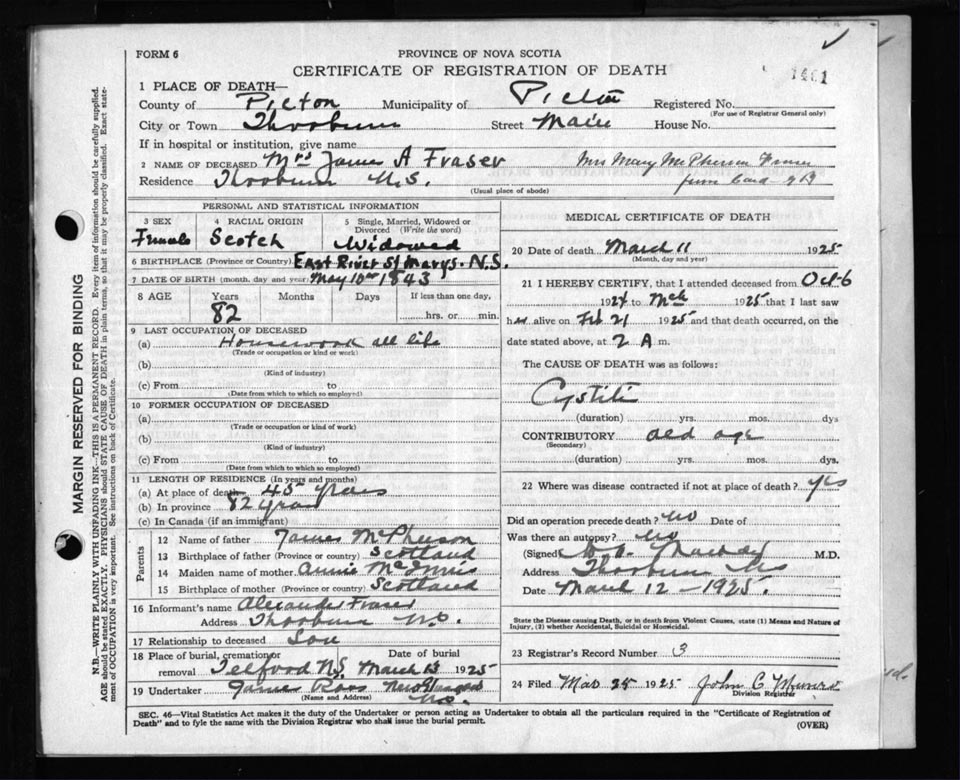 FORM 6
PROVINCE OF NOVA SCOTIA
CERTIFICATE OF REGISTRATION OF DEATH
1461
1 PLACE OF DEATH—
County of Picton Municipality of Pictou Registered No.
(For use of Registrar General only)
City or Town Thorburn Street Main House No.
If in hospital or institution, give name
2 NAME OF DECEASED Mrs James A Fraser Mrs Mary McPherson Fraser
Residence Thorburn N.S. from Card
(Usual place of abode)
PERSONAL AND STATISTICAL INFORMATION
3 SEX 4 RACIAL ORIGIN 5 Single, Married, Widowed or Divorced (Write the word)
Female Scotch Widowed
6 BIRTHPLACE (Province or Country) East River St Marys. N.S.
7 DATE OF BIRTH (month, day and year) May 10th 1843
8 AGE Years Months Days If less than one day,
82 hrs. or min.
9 LAST OCCUPATION OF DECEASED
(a) Housework all life
(Trade or occupation or kind or work)
(b)
(Kind of industry)
(c) From to
(Date from which to which so employed)
10 FORMER OCCUPATION OF DECEASED
(a)
(Trade or occupation or kind of work)
(b)
(Kind of industry)
(c) From to
(Date from which to which so employed)
11 LENGTH OF RESIDENCE (In years and months)
(a) At place of death 45 years
(b) In province 82 years
(c) In Canada (if an immigrant)
Parents
12 Name of father James McPherson
13 Birthplace of father (Province or country) Scotland
14 Maiden name of mother Annie McInnis
15 Birthplace of mother (Province or country) Scotland
16 Informant's name Alexander Fraser
Address Thorburn N.S.
17 Relationship to deceased Son
18 Place of burial, cremation or removal Telford N.S. Date of burial March 13 1925
19 Undertaker James Ross New Glasgow N.S.
(Name and Address)
MEDICAL CERTIFICATE OF DEATH
20 Date of death March 11 1925
(Month, day and year)
21 I HEREBY CERTIFY, that I attended deceased from Oct 6
1924 to Mch 1925 that I last saw
her alive on Feb 21 1925 and that death occurred, on the
date stated above, at 2 A m.
The CAUSE OF DEATH was as follows:
Cystitis
(duration) yrs. mos. dys
CONTRIBUTORY old age
(Secondary)
(duration) yrs. mos. dys.
22 Where was disease contracted if not at place of death? yes
Did an operation precede death? no Date of
Was there an autopsy? no
(Signed) M.D.
Address Thorburn NS
Date March 12 - 1925.
State the Disease causing Death, or in death from Violent Causes, state (1) Means and Nature of
Injury, (2) whether Accidental, Suicidal or Homicidal.
23 Registrar's Record Number 3
24 Filed Mar 25 1925 John C Munro
Division Registrar
SEC. 46—Vital Statistics Act makes it the duty of the Undertaker or person acting as Undertaker to obtain all the particulars required in the "Certificate of Registration of
Death" and to fyle the same with the Division Registrar who shall issue the burial permit.
(OVER)
MARGIN RESERVED FOR BINDING
N.B.—WRITE PLAINLY WITH UNFADING INK—THIS IS A PERMANENT RECORD. Every item of information should be carefully supplied.
AGE should be stated EXACTLY. PHYSICIANS should STATE CAUSE OF DEATH in plain terms, so that it may be properly classified. Exact state-
ment of OCCUPATION is very important. See instructions on back of Certificate.